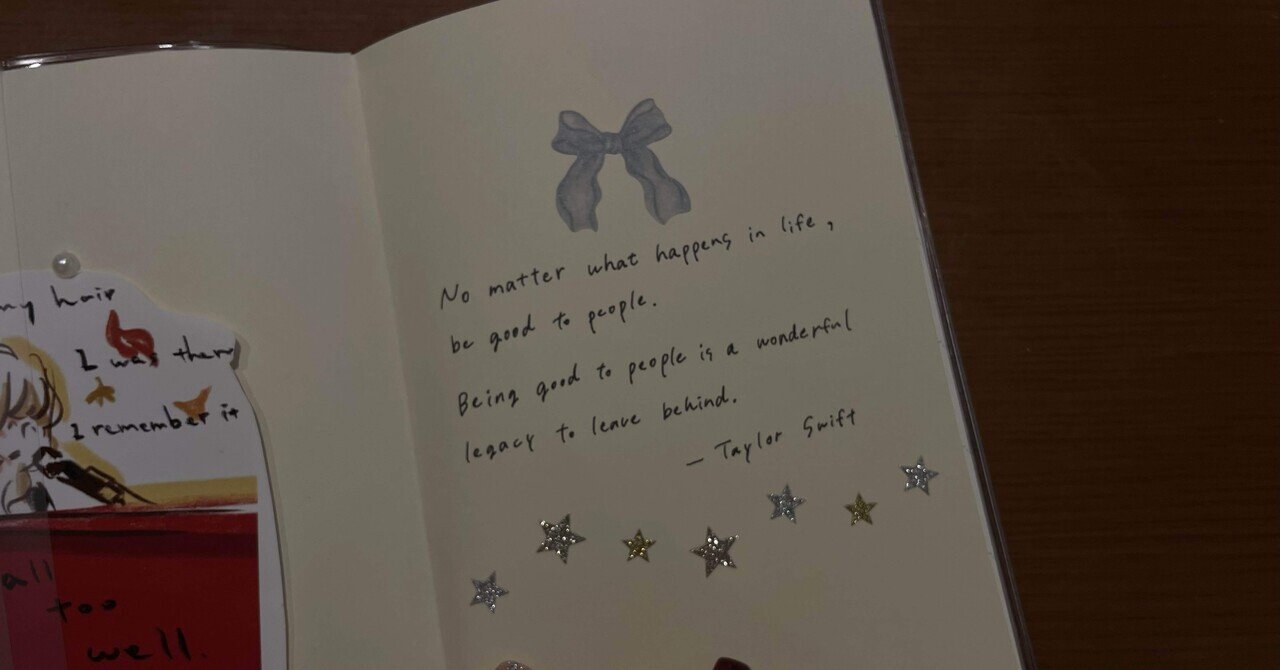 my hair
I was there
I remember it
all
too
well.
No matter what happens in life,
be good to people.
Being good to people is a wonderful
legacy to leave behind.
— Taylor Swift